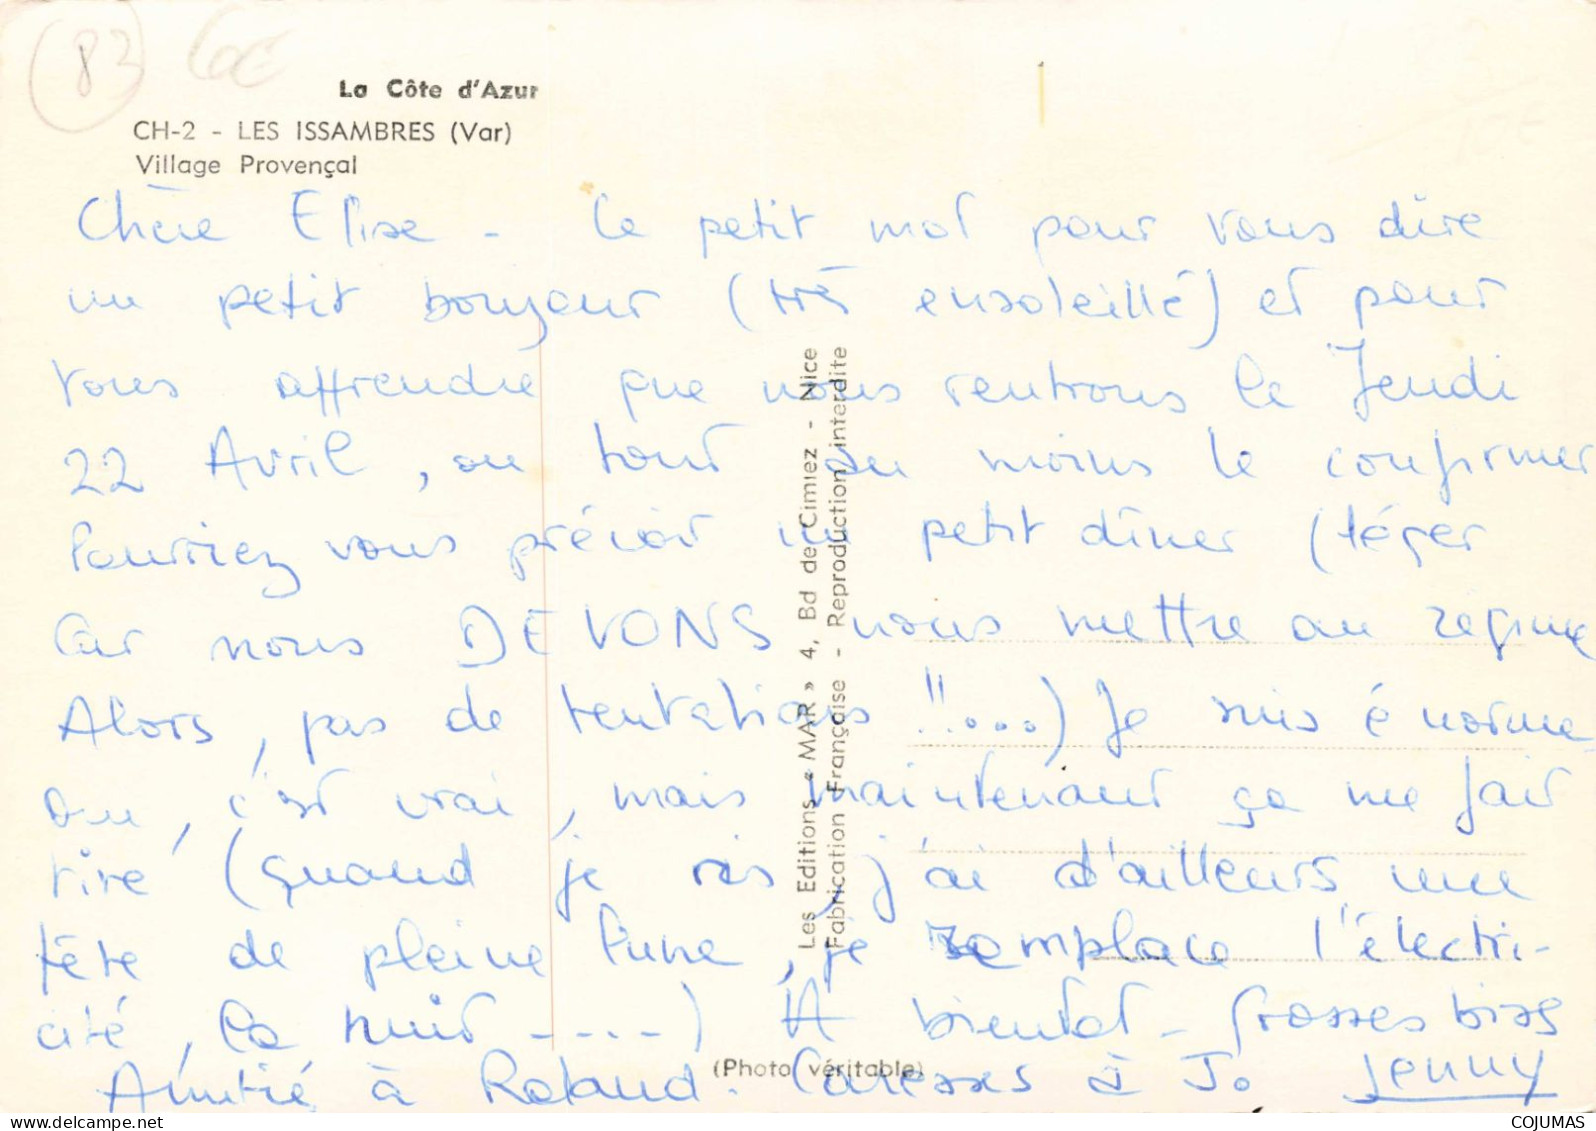 83
La Côte d'Azur
CH-2 - LES ISSAMBRES (Var)
Village Provençal
Chère Elise - Ce petit mot pour vous dire
un petit bonjour (très ensoleillé) et pour
vous apprendre que nous rentrons le Jeudi
22 Avril, ou tout du moins le confirmer
Pourriez vous prévoir un petit dîner (léger
Car nous DEVONS nous mettre au régime
Alors, pas de tentations !!....) Je suis énorme
Oui, c'est vrai, mais maintenant ça me fait
rire (quand je ris, j'ai d'ailleurs une
tête de pleine lune, je remplace l'électri-
cité, la nuit ----) A bientôt - Grosses bises
Amitié à Roland. Caresses à J. Jenny
Les Editions « MAR » 4, Bd de Cimiez - Nice
Fabrication Française - Reproduction interdite
(Photo véritable)
COJUMAS